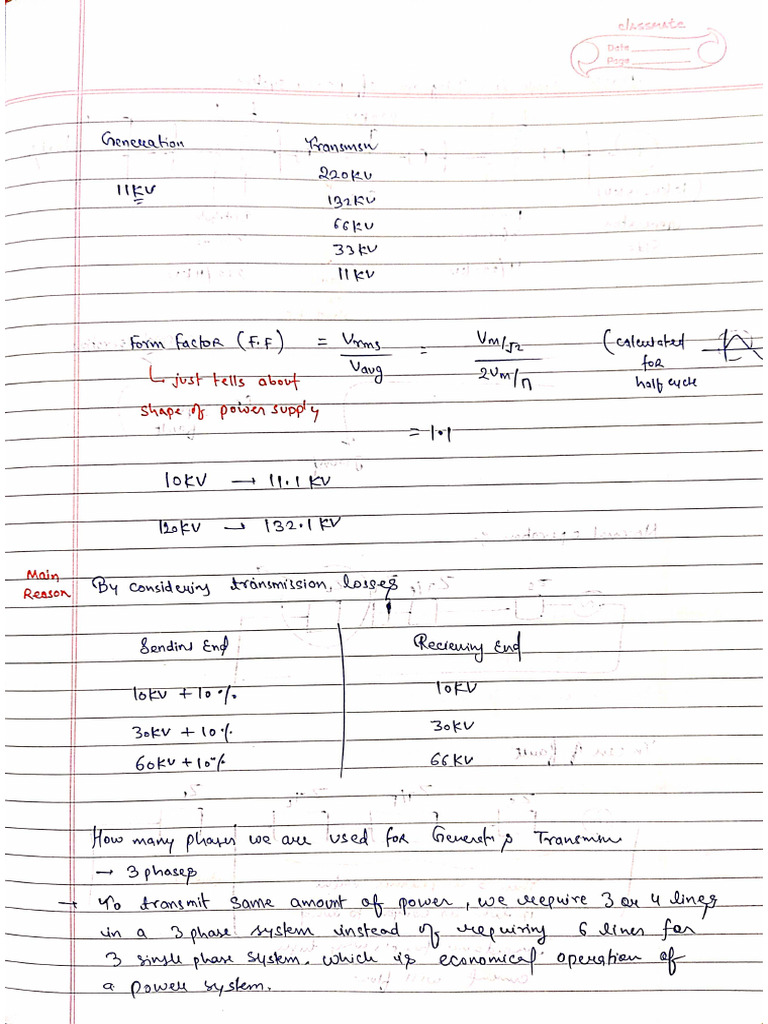 classmate
Date
Page
Generation Transmsn
220KV
11KV
132KV
66KV
33KV
11KV
Form Factor (F.F) = Vrms / Vavg = Vm/√2 / 2Vm/π (calculated for half cycle
just tells about
shape of power supply
= 1.1
10KV → 11.1 KV
120KV → 132.1KV
Main Reason By considering transmission, losses
Sendins End Recieving End
10KV + 10% 10KV
30KV + 10% 30KV
60KV + 10% 66KV
How many phases we are used for Generatn & Transmsn
→ 3 phases
→ To transmit same amount of power, we require 3 or 4 lines
in a 3 phase system instead of requiring 6 lines for
3 single phase system. which is economical operation of
a power system.